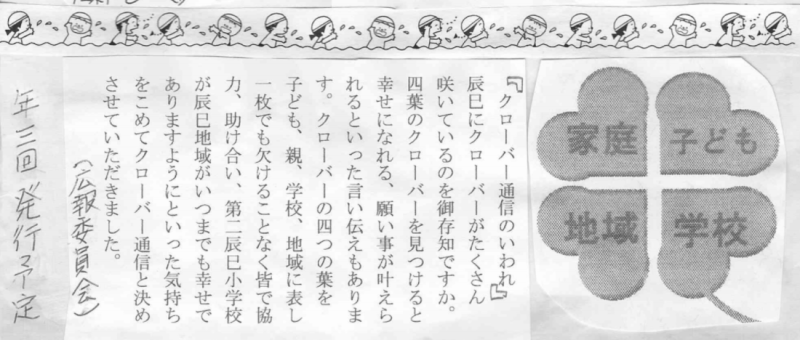 家庭
子ども
地域
学校
『クローバー通信のいわれ』
辰巳にクローバーがたくさん
咲いているのを御存知ですか。
四葉のクローバーを見つけると
幸せになれる、願い事が叶えら
れるといった言い伝えもありま
す。クローバーの四つの葉を
子ども、親、学校、地域に表し
一枚でも欠けることなく皆で協
力、助け合い、第二辰巳小学校
が辰巳地域がいつまでも幸せで
ありますようにといった気持ち
をこめてクローバー通信と決め
させていただきました。
(広報委員会)
年三回発行予定